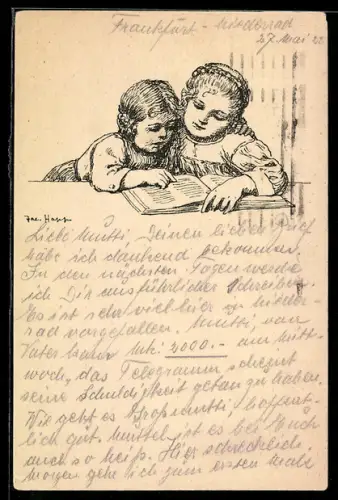 Frankfurt - Niederrad
27 Mai 22
Liebe Mutti, Deinen lieben Brief
habe ich dankend bekommen.
In den nächsten Tagen werde
ich Dir ausführlicher schreiben.
Es ist sehr viel hier in Nieder-
rad vorgefallen. Mutti, von
Vater kam Mk: 2000.- am Mitt-
woch, das Telegramm scheint
seine Schuldigkeit getan zu haben.
Wie geht es Großmutti, hoffent-
lich gut. Muttel ist es bei Euch
auch so heiß. Hier schrecklich.
morgen gehe ich zum ersten Male